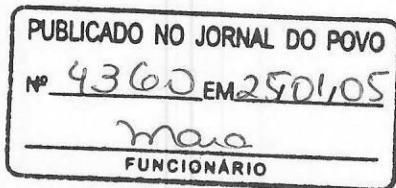 PUBLICADO NO JORNAL DO POVO
Nº 4360 EM 25,01,05
FUNCIONÁRIO